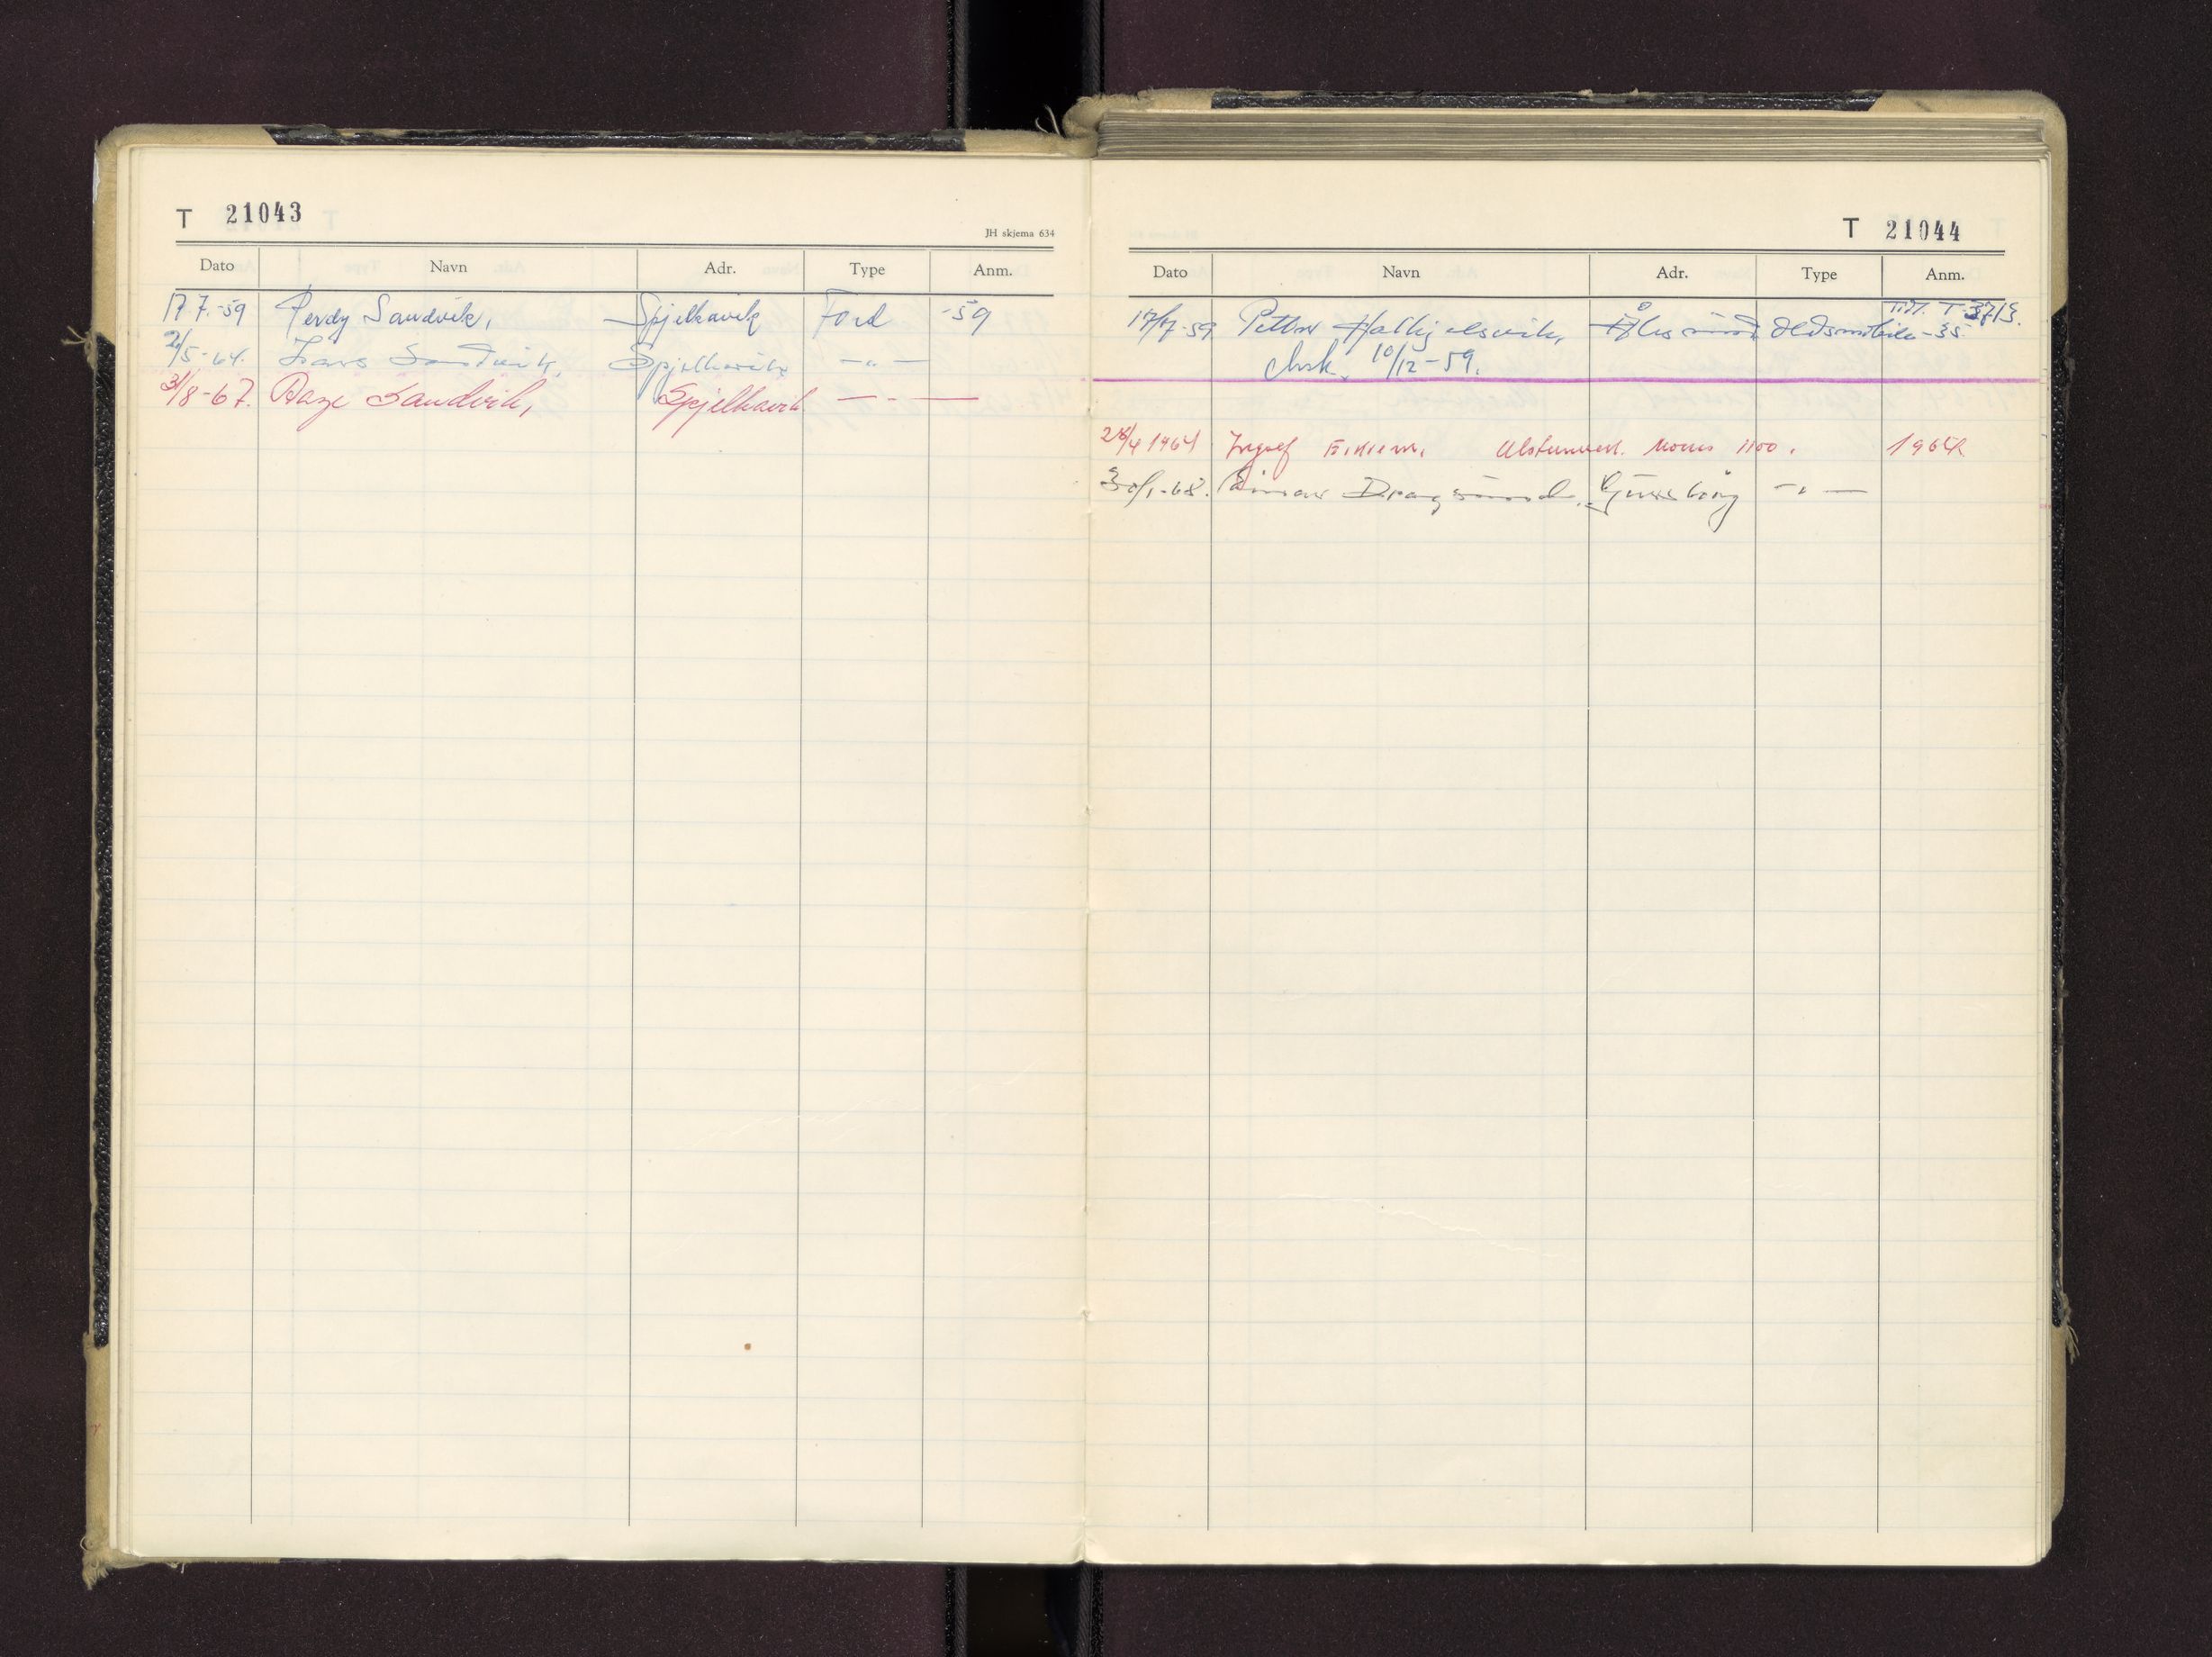 T 21043
JH skjema 634
Dato Navn Adr. Type Anm.
17 7.-59 Perdy Sandvik, Spjelkavik Ford -59
2/5-64. Lars Sandvik, Spjelkavik —"—
31/8-67. Aage Sandvik, Spjelkavik —"—
T 21044
Dato Navn Adr. Type Anm.
Tidl. T-3713.
17/7-59 Petter Hatlhjelsvik, Ålesund, Oldsmobile -35
Avsk. 10/12-59.
28/4 1964 Ingolf Eikrem, Ulsteinvik. Morris 1100. 1964
30/1-68. Einar Dragsund, Gurskøy —"—